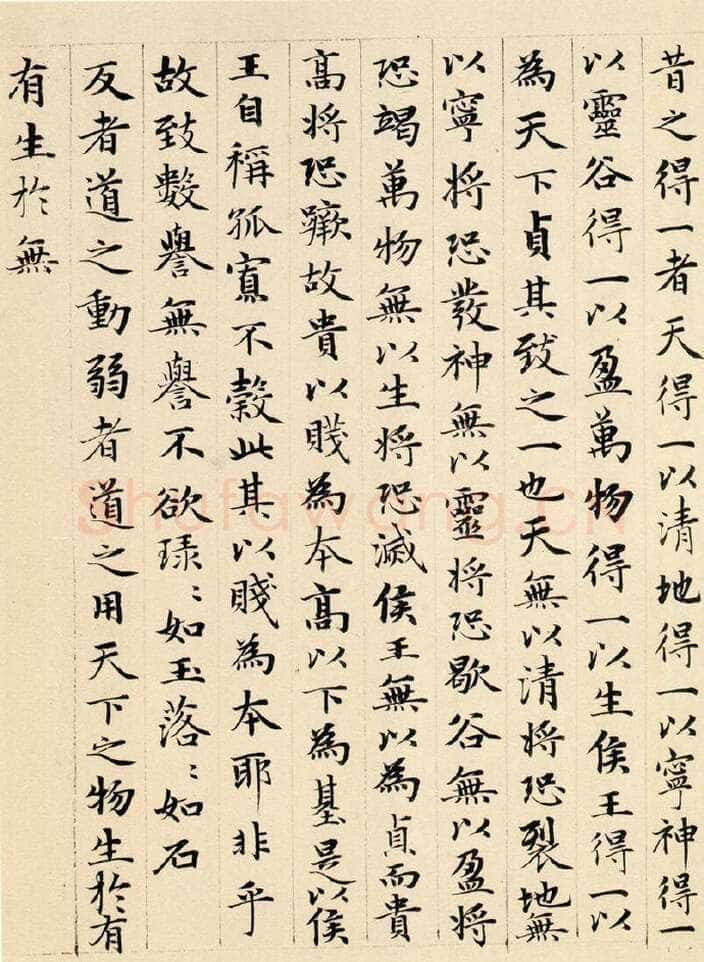 昔之得一者天得一以清地得一以寧神得一
以靈谷得一以盈萬物得一以生侯王得一以
為天下貞其致之一也天無以清將恐裂地無
以寧將恐發神無以靈將恐歇谷無以盈將
恐竭萬物無以生將恐滅侯王無以為貞而貴
高將恐蹶故貴以賤為本高以下為基是以侯
王自稱孤寡不穀此其以賤為本耶非乎
故致數譽無譽不欲琭〻如玉落〻如石
反者道之動弱者道之用天下之物生於有
有生於無
Shufawang.cn